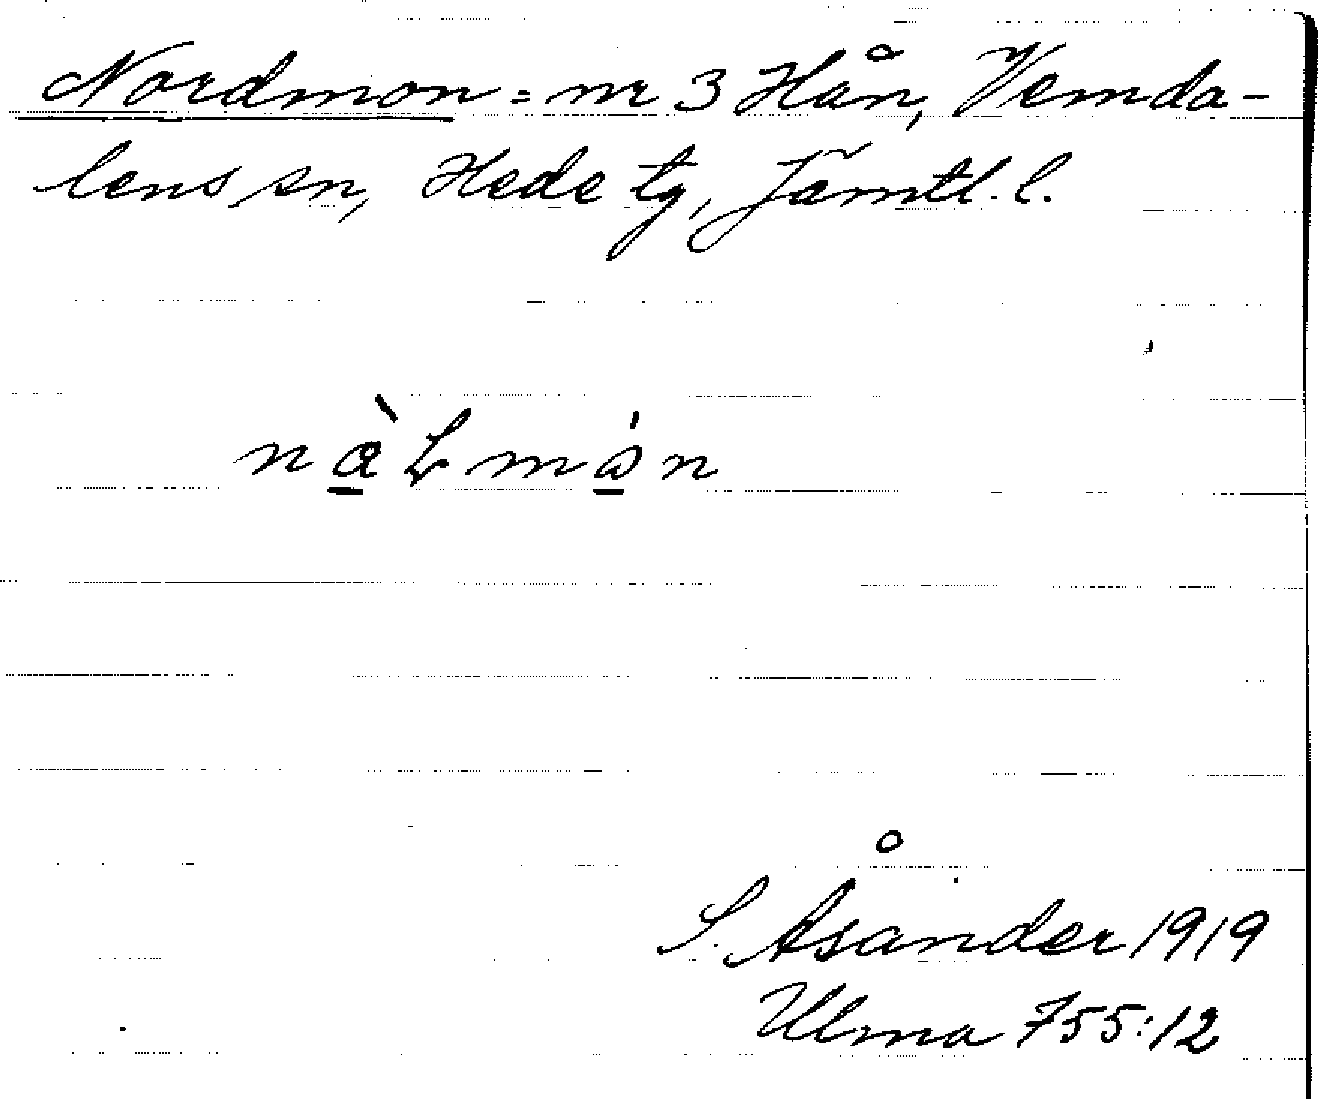 Nordmon = nr 3 Hån, Vemda-
lens sn, Hede tg, Jämtl. l.
nàLmón
S. Åsander 1919
Ulma 755:12